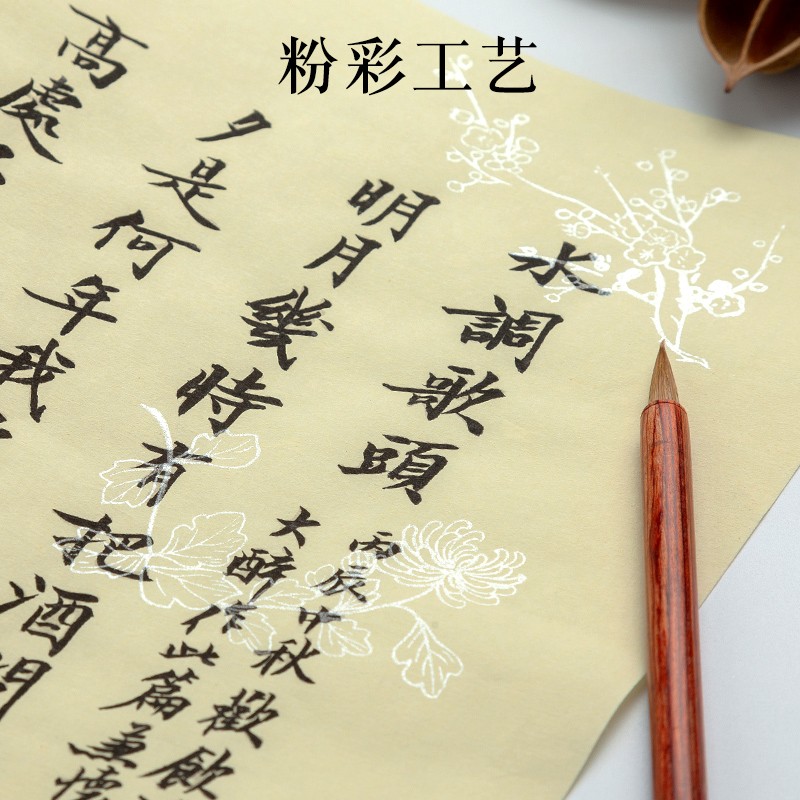 粉彩工艺
水調歌頭
丙辰中秋歡飲
大醉作此篇兼懷
明月幾時有把酒問
夕是何年我
高處